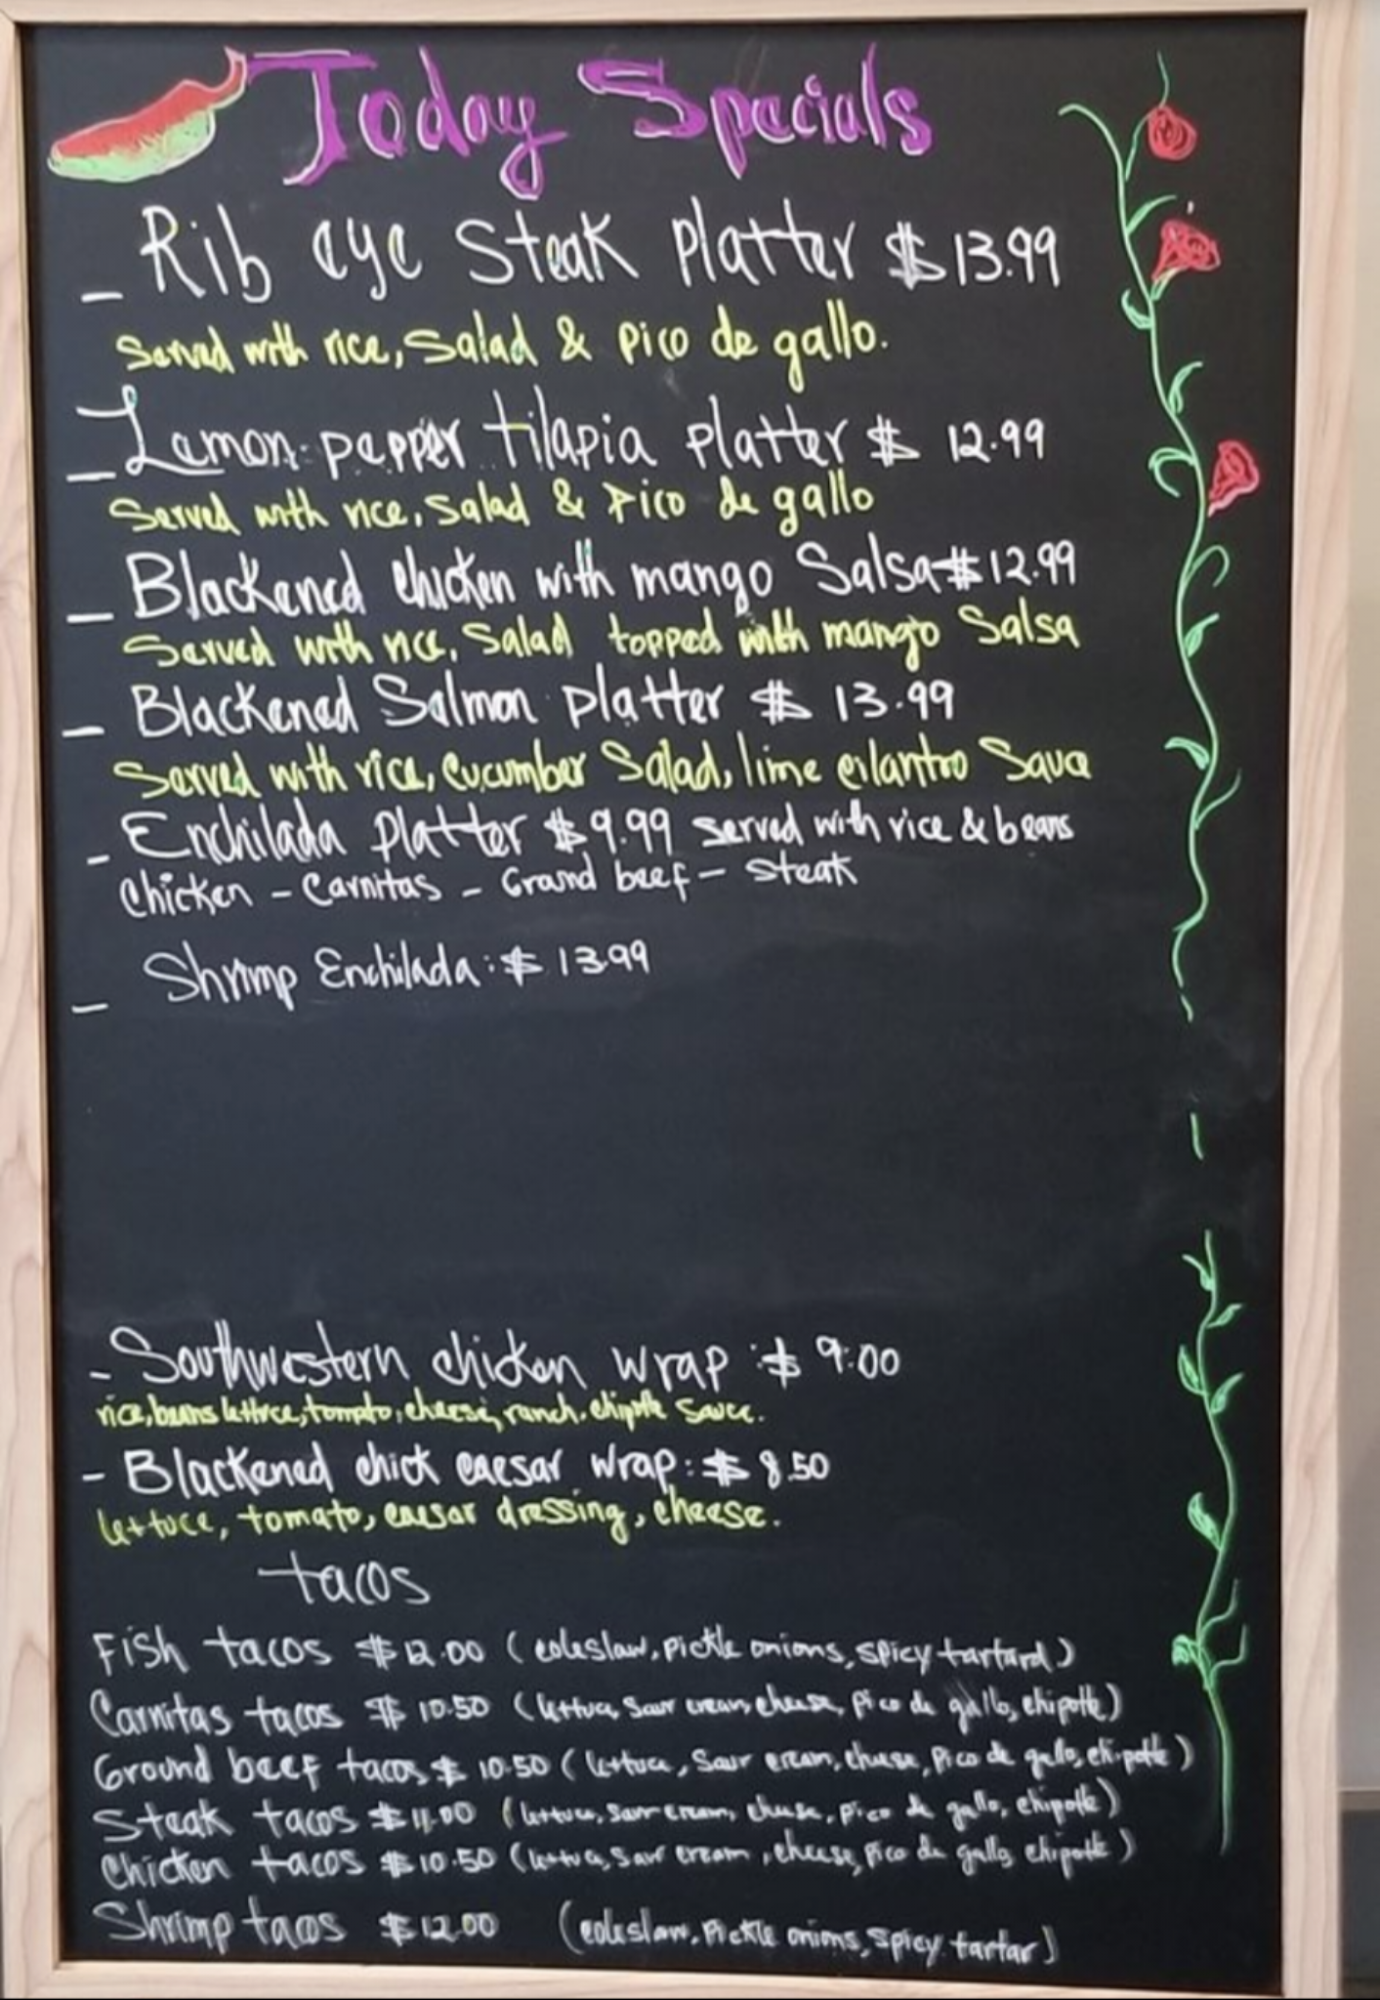 Today Specials
- Rib eye Steak Platter $13.99
Served with rice, Salad & pico de gallo.
- Lemon-pepper tilapia platter $ 12.99
Served with rice, Salad & Pico de gallo
- Blackened chicken with mango Salsa $12.99
Served with rice, Salad topped with mango Salsa
- Blackened Salmon platter $ 13.99
Served with rice, cucumber Salad, lime cilantro Sauce
- Enchilada Platter $9.99 served with rice & beans
Chicken - Carnitas - Grand beef - steak
- Shrimp Enchilada: $ 13.99
- Southwestern chicken wrap : $ 9.00
rice, beans lettuce, tomato, cheese, ranch, chipotle sauce.
- Blackened chick caesar wrap: $ 8.50
lettuce, tomato, caesar dressing, cheese.
tacos
Fish tacos $12.00 (coleslaw, pickle onions, spicy tartard)
Carnitas tacos $ 10.50 (lettuce, Sour cream, cheese, pico de gallo, chipotle)
Ground beef tacos $ 10.50 (lettuce, Sour cream, cheese, Pico de gallo, chipotle)
Steak tacos $11.00 (lettuce, sour cream, cheese, pico de gallo, chipotle)
Chicken tacos $10.50 (lettuce, sour cream, cheese, pico de gallo, chipotle)
Shrimp tacos $12.00 (coleslaw, pickle onions, spicy tartar)